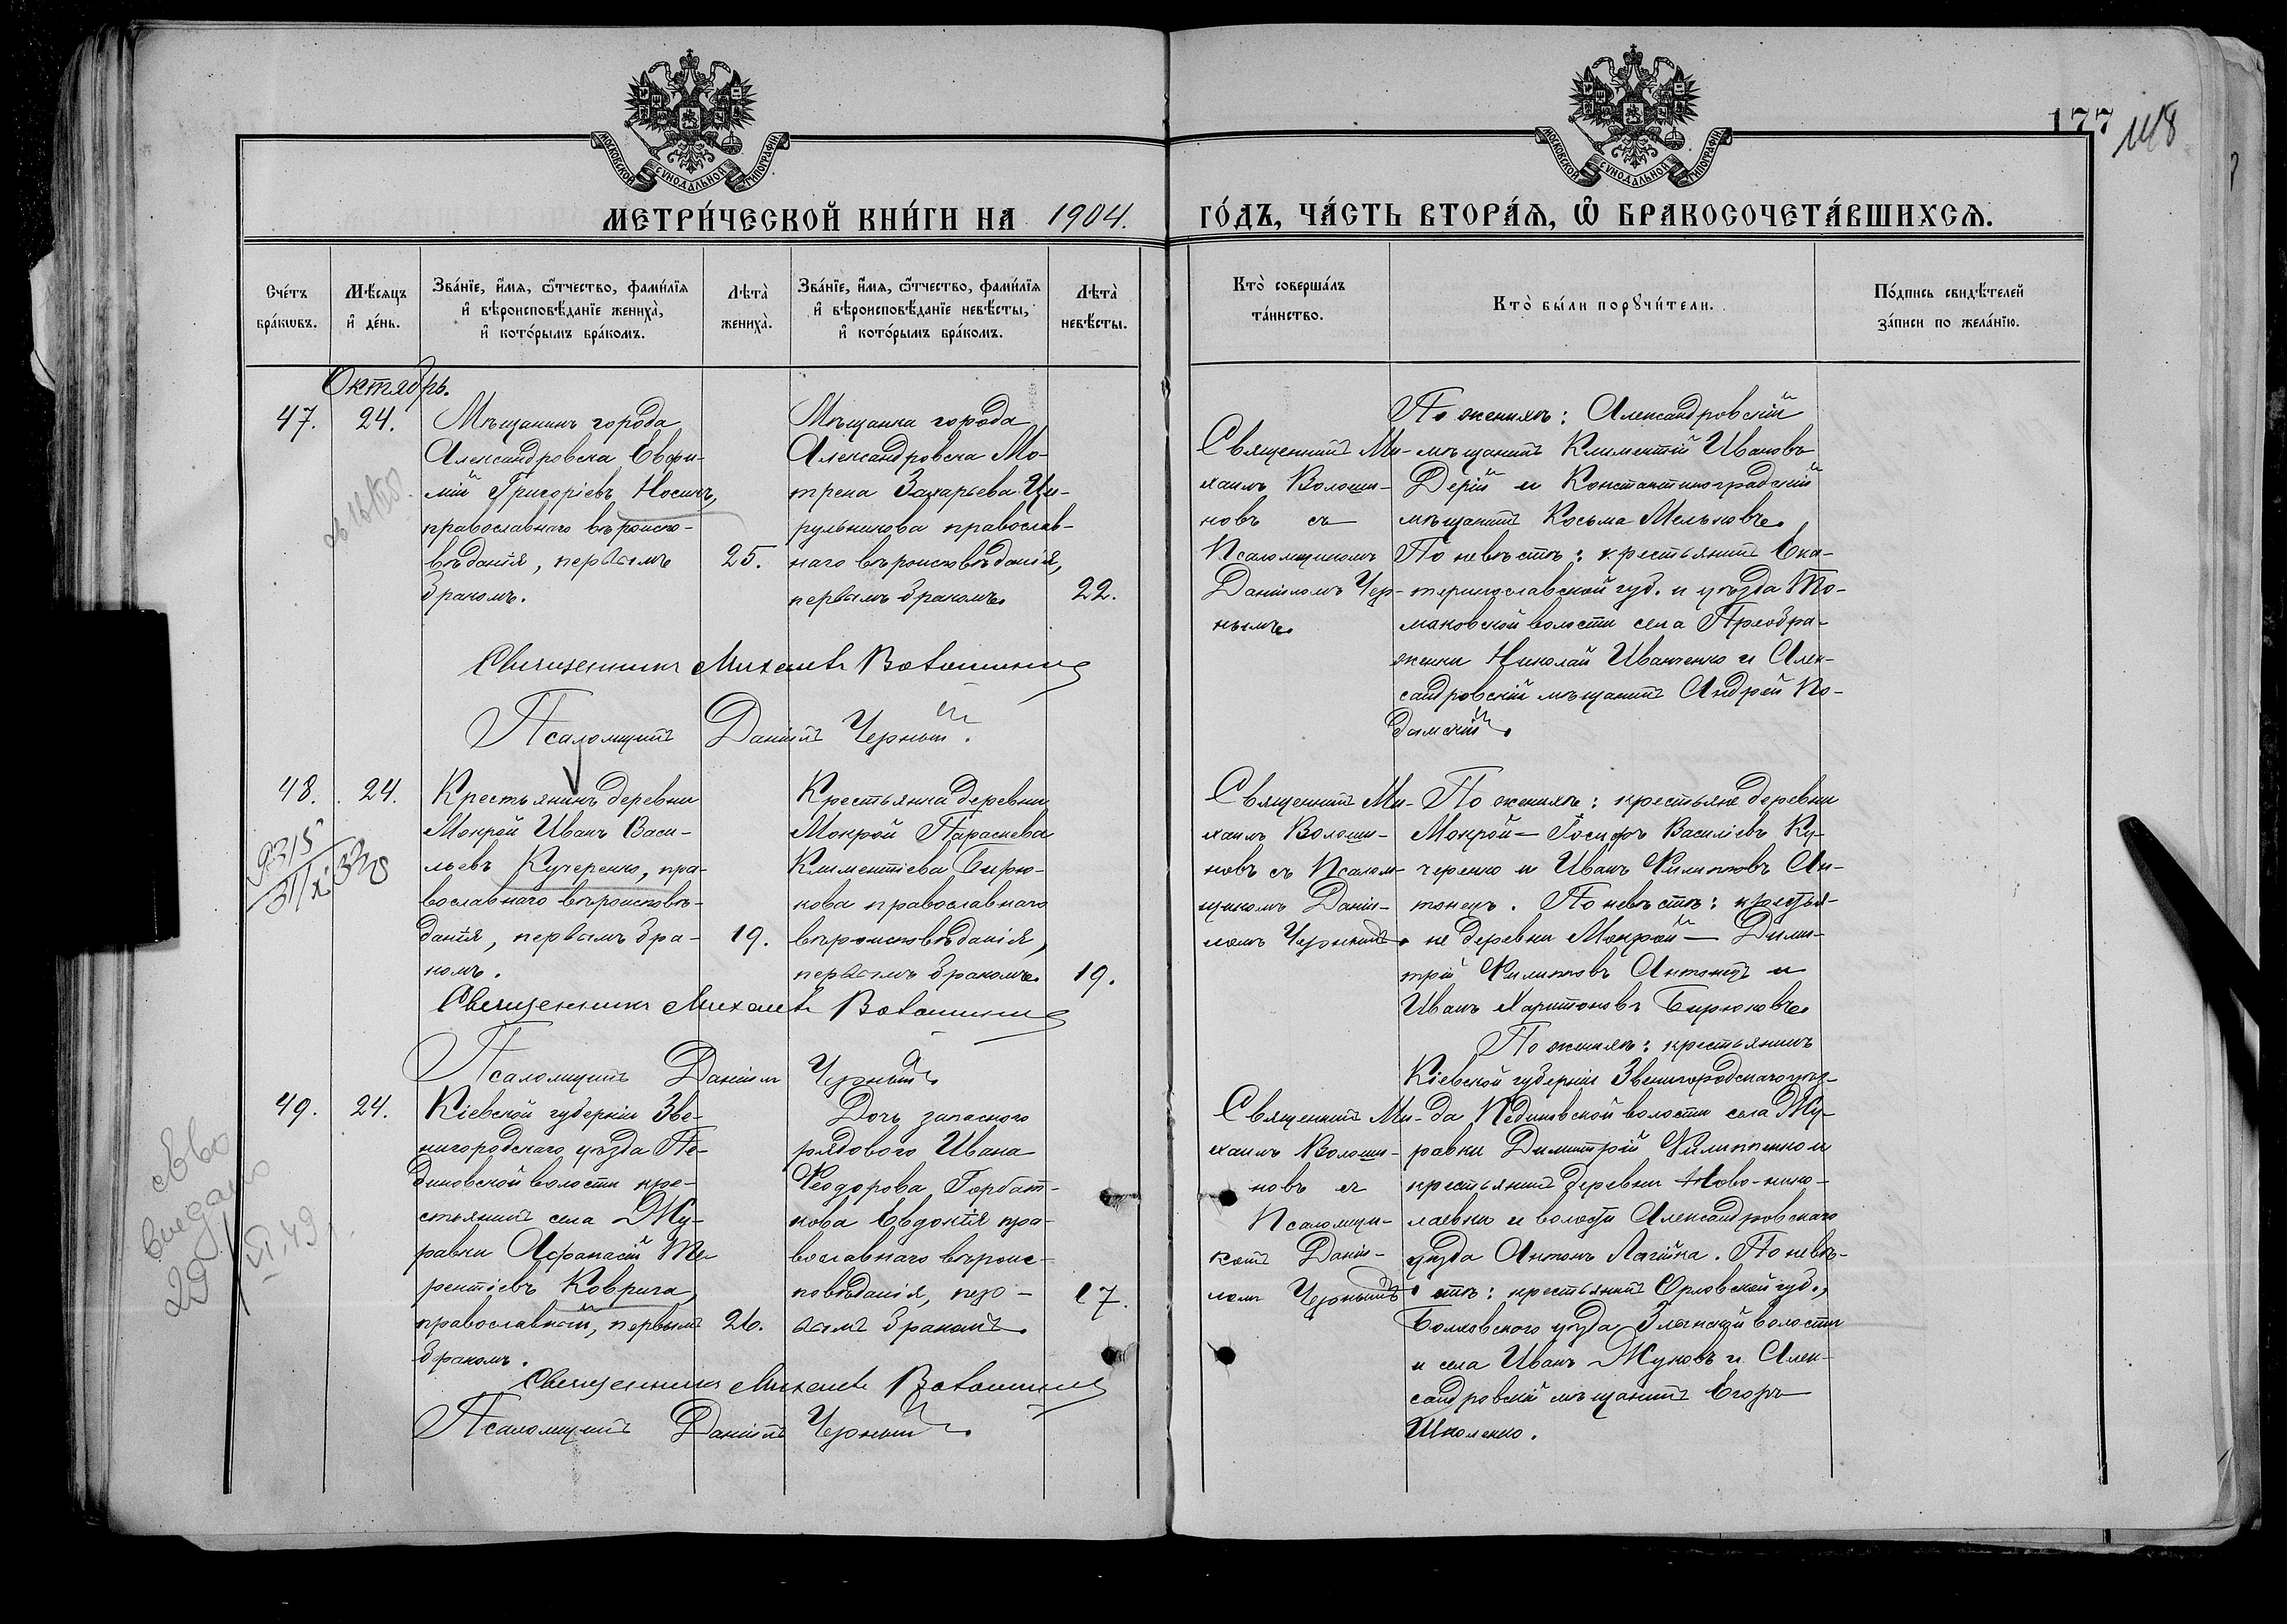 МОСКОВСКОЙ СѴНОДАЛЬНОЙ ТИПОГРАФІИ
МОСКОВСКОЙ СѴНОДАЛЬНОЙ ТИПОГРАФІИ
177
МЕТРИ́ЧЕСКОЙ КНИ́ГИ НА 1904.
ГО́ДЪ, ЧА́СТЬ ВТОРА́Ѧ, Ѽ БРАКОСОЧЕТА́ВШИХСѦ.
Сче́тъ
бра́кѡвъ.
Мѣ́сяцъ
и҆ де́нь.
Зва́нїе, и҆́мѧ, ѻ҆́тчество, фами́лїѧ
и҆ вѣроисповѣ́данїе жениха̀,
и҆ кото́рымъ бра́комъ.
Лѣта̀
жениха̀.
Зва́нїе, и҆́мѧ, ѻ҆́тчество, фами́лїѧ
и҆ вѣроисповѣ́данїе невѣ́сты,
и҆ кото́рымъ бра́комъ.
Лѣта̀
невѣ́сты.
Кто̀ соверша́лъ
та́инство.
Кто̀ бы́ли порꙋчи́тели.
По́дпись свидѣ́телей
за́писи по жела́нїю.
Октябрь.
47.
24.
Мѣщанинъ города
Александровска Евфи-
мій Григоріевъ Носикъ,
православнаго вѣроиспо-
вѣданія, первымъ
бракомъ.
25.
Мѣщанка города
Александровска Мо-
трена Захарьева Ци-
рульникова православ-
наго вѣроисповѣданія,
первымъ бракомъ.
22.
Священникъ Ми-
хаилъ Волоши-
новъ съ
Псаломщикомъ
Даніиломъ Чер-
нымъ.
По женихѣ: Александровскій
мѣщанинъ Климентій Ивановъ
Дерій и Константиноградскій
мѣщанинъ Косьма Мельковъ.
По невѣстѣ: крестьянинъ Ека-
теринославской губ. и уѣзда То-
маковской волости села Преобра-
женки Николай Иванченко и Алек-
сандровскій мѣщанинъ Андрей По-
дамскій.
Священникъ Михаилъ Волошиновъ
Псаломщикъ Даніилъ Черный.
48.
24.
Крестьянинъ деревни
Мокрой Иванъ Васи-
льевъ Кучеренко, пра-
вославнаго вѣроисповѣ-
данія, первымъ бра-
комъ.
19.
Крестьянка деревни
Мокрой Параскева
Климентіева Бирю-
кова православнаго
вѣроисповѣданія,
первымъ бракомъ.
19.
Священникъ Ми-
хаилъ Волоши-
новъ съ Псалом-
щикомъ Даніи-
ломъ Чернымъ.
По женихѣ: крестьяне деревни
Мокрой — Іосифъ Василіевъ Ку-
черенко и Иванъ Филипповъ Ан-
тонецъ. По невѣстѣ: крестья-
не деревни Мокрой — Дими-
трій Филипповъ Антонецъ и
Иванъ Харитоновъ Бирюковъ.
Священникъ Михаилъ Волошиновъ
Псаломщикъ Даніилъ Черный.
49.
24.
Кіевской губерніи Зве-
нигородскаго уѣзда Пе-
диновской волости кре-
стьянинъ села Жу-
равки Афанасій Те-
рентіевъ Коврига,
православный, первымъ
бракомъ.
26.
Дочь запасного
рядового Ивана
Феодорова Горбат-
кова Евдокія пра-
вославнаго вѣроис-
повѣданія, пер-
вымъ бракомъ.
17.
Священникъ Ми-
хаилъ Волоши-
новъ съ
Псаломщи-
комъ Даніи-
ломъ Чернымъ.
По женихѣ: крестьянинъ
Кіевской губерніи Звенигородскаго уѣз-
да Пединовской волости села Жу-
равки Димитрій Филиппенко и
крестьянинъ деревни Ново-нико-
лаевки и волости Александровскаго
уѣзда Антонъ Лагійка. По невѣ-
стѣ: крестьянинъ Орловской губ.,
Болховского уѣзда Злынской волости
и села Иванъ Жуковъ и Алек-
сандровскій мѣщанинъ Егоръ
Школенко.
Священникъ Михаилъ Волошиновъ
Псаломщикъ Даніилъ Черный.